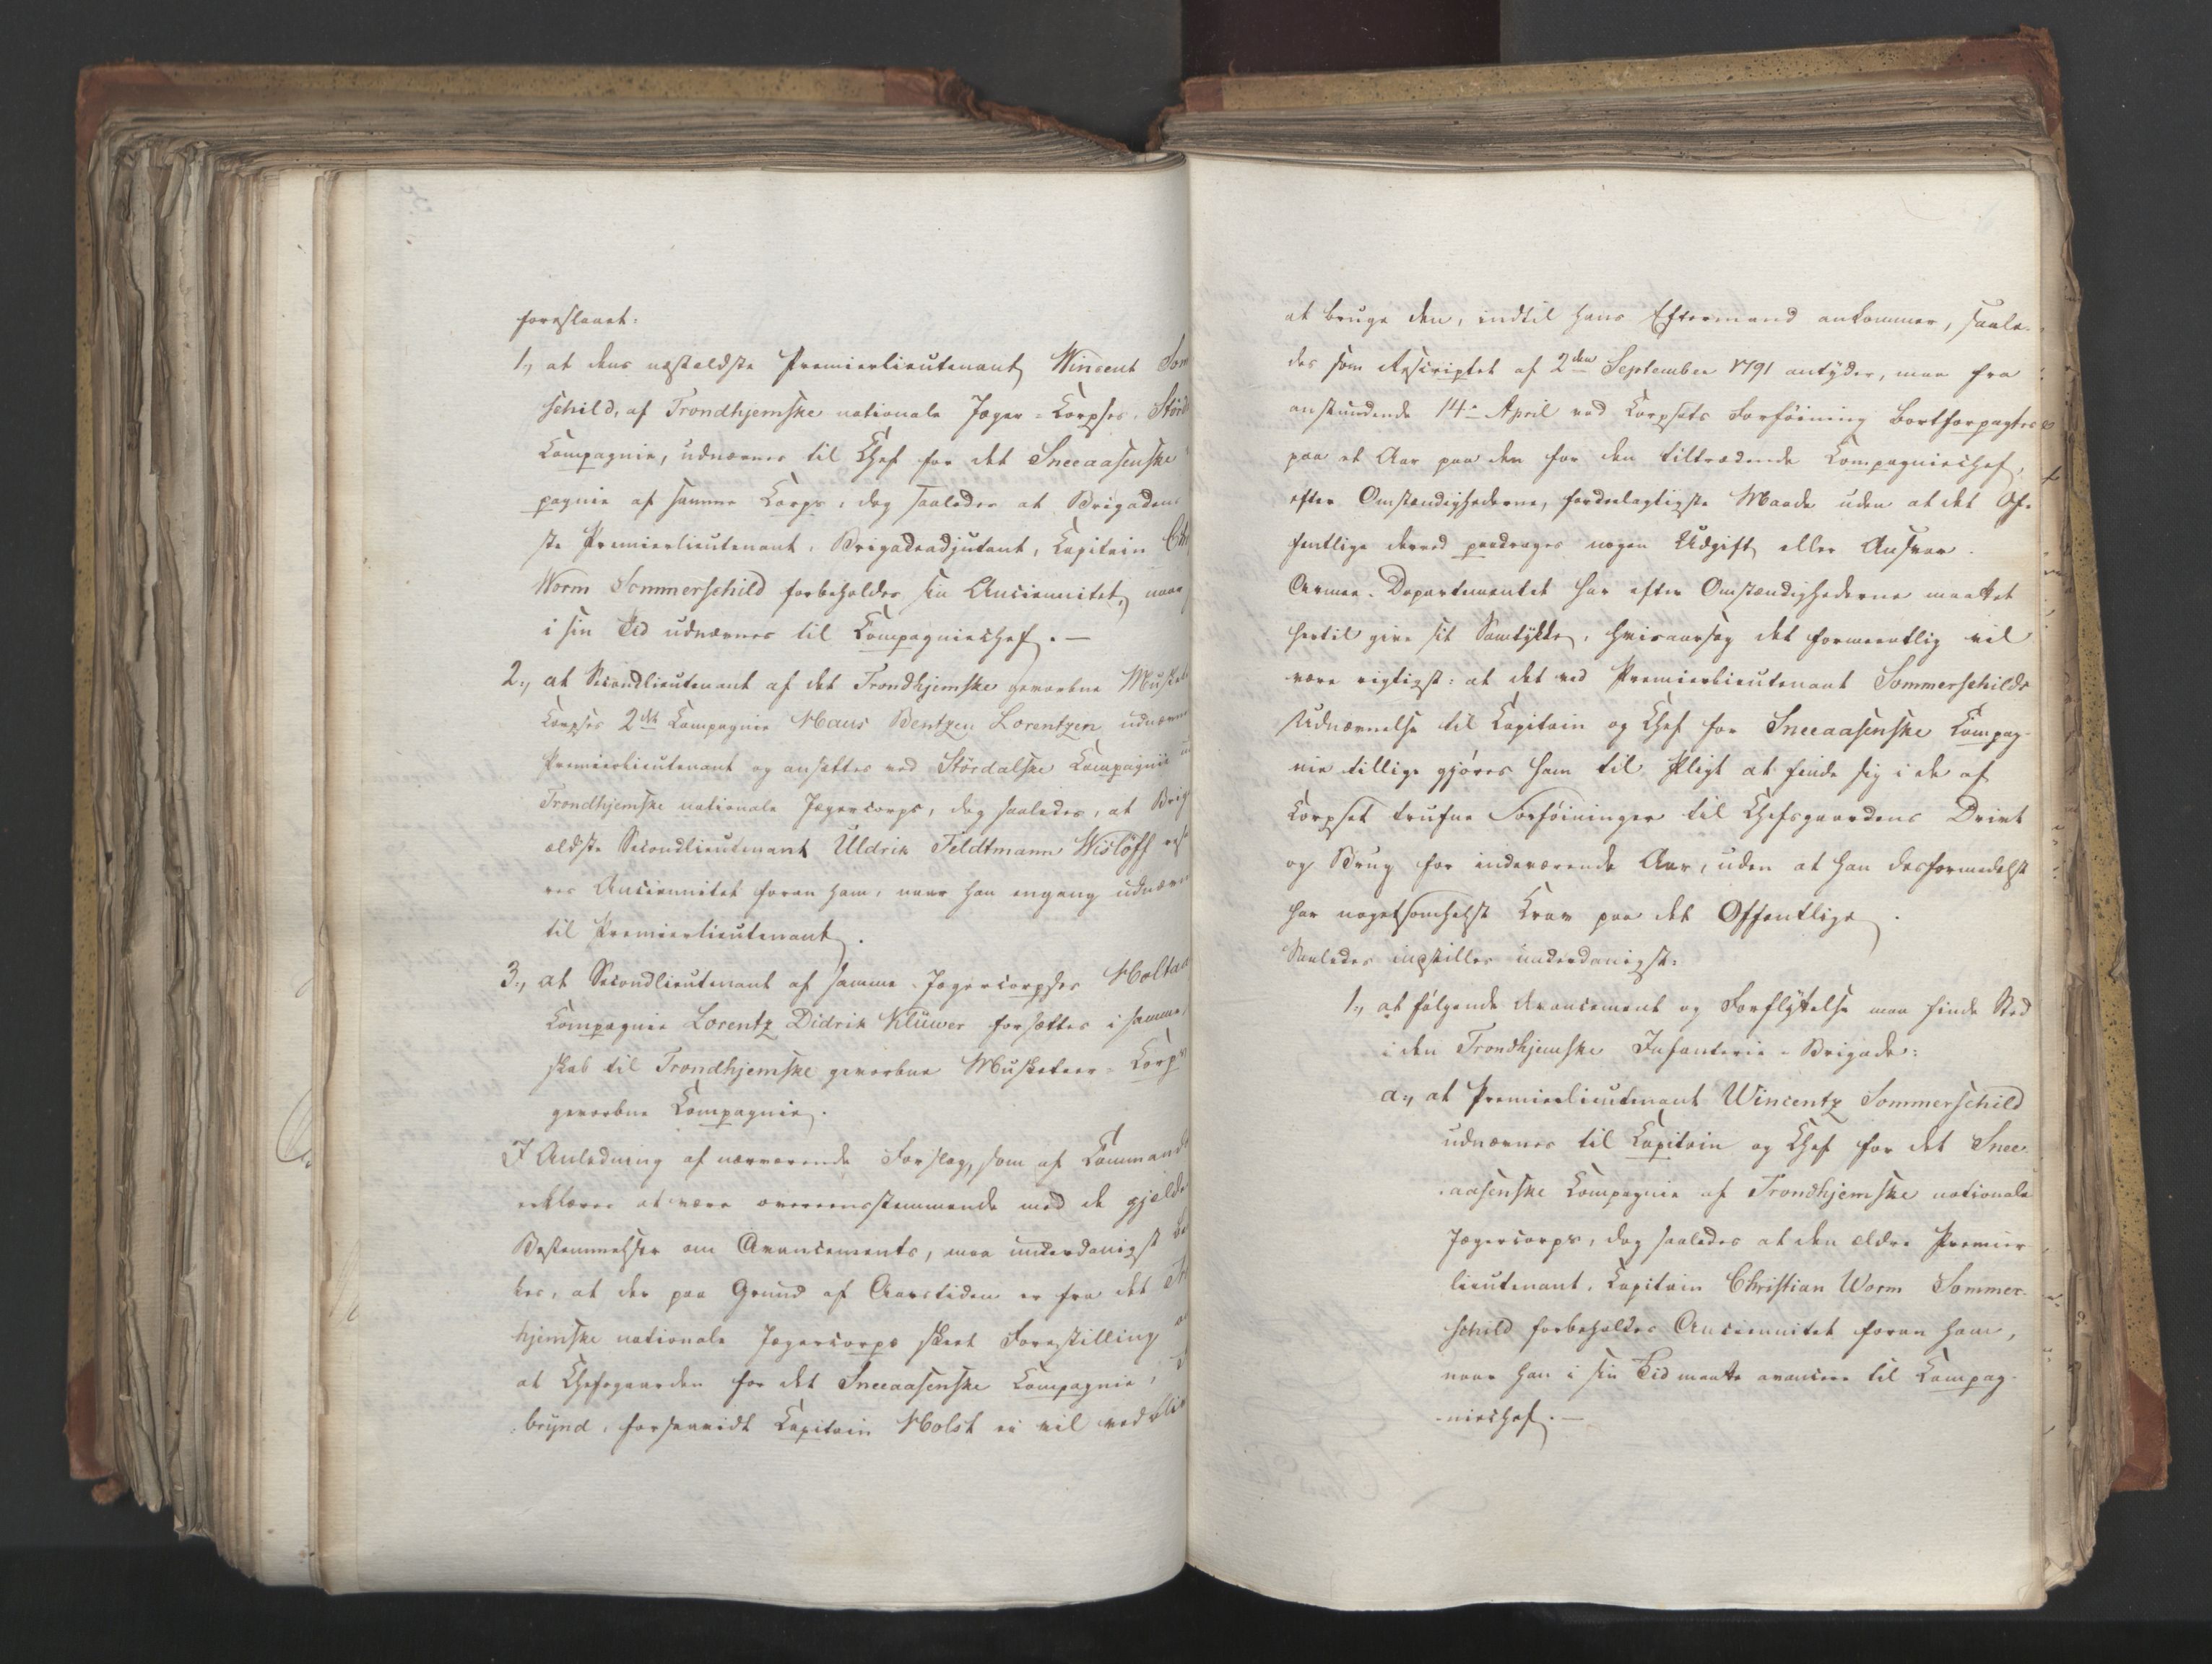 foreslaaet:
1., at dens næstældste Premierlieutenant Wincent Som
schild, af Trondhjemske nationale Jæger-Corpses Störd
Compagnie, udnævnes til Chef for det Sneeaasenske
pagnie af samme Corps, dog saaledes at Brigaden
ste Premierlieutenant, Brigadeadjutant, Capitain Chr
Worm Sommerschild forbeholdes sin Anciennitet, naar
i sin Tid udnævnes til Compagniechef. —
2., at Secondlieutenant af det Trondhjemske gevorbne Musket
Corpses 2det Compagnie Haus Bentzen Lorentzen udnævne
Premierlieutenant og ansættes ved Stördalske Compagnie
Trondhjemske nationale Jægercorps, dog saaledes, at Brig
ældste Secondlieutenant Uldrik Feldtmann Wislöff res
res Anciennitet foran ham, naar han engang udnævn
til Premierlieutenant.
3., at Secondlieutenant af samme Jægercorpses Holtaa
Compagnie Lorentz Didrik Klüwer forsættes i samme
skab til Trondhjemske gevorbne Musketeer-Corps
gevorbne Compagnie.
I Anledning af nærværende Forslag, som af Command
erklæres at være overeensstemmende med de gjælde
Bestemmelser om Avancements, maa underdanigst be
kes, at der paa Grund af Aarstiden er fra det Tr
hjemske nationale Jægercorps skeet Forestilling
at Chefsgaarden for det Sneeaasenske Compagnie,
brynd, forsaavidt Capitain Holst ei vil vedbliv
at bruge den, indtil hans Eftermand ankommer, saale-
des som Rescriptet af 2den September 1791 antyder, maa fra
anstundende 14de April ved Corpsets Forföining bortforpagtes
paa et Aar paa den for den tiltrædende Compagniechef,
efter Omstændighederne, fordeelagtigste Maade uden at det Of-
fentlige derved paadrages nogen Udgift eller Ansvar.
Armee-Departementet har efter Omstændighederne maattet
hertil give sit Samtykke, hvisaarsag det formeentlig vil
være rigtigst: at det ved Premierlieutenant Sommerschilds
Udnævnelse til Capitain og Chef for Sneeaasenske Compag-
nie tillige gjöres ham til Pligt at finde sig i de af
Corpset trufne Forföininger til Chefsgaardens Drivt
og Brug for indeværende Aar, uden at han desformedelst
har nogetsomhelst Krav paa det Offentlige.
Saaledes indstilles underdanigst:
1., at fölgende Avancement og Forflyttelse maa finde Sted
i den Trondhjemske Infanterie-Brigade:
a., at Premierlieutenant Wincentz Sommerschild
udnævnes til Capitain og Chef for det Snee-
aasenske Compagnie af Trondhjemske nationale
Jægercorps, dog saaledes at den ældre Premier
lieutenant, Capitain Christian Worm Sommer-
schild forbeholdes Anciennitet foran ham,
naar han i sin Tid maatte avancere til Compag-
niechef. —